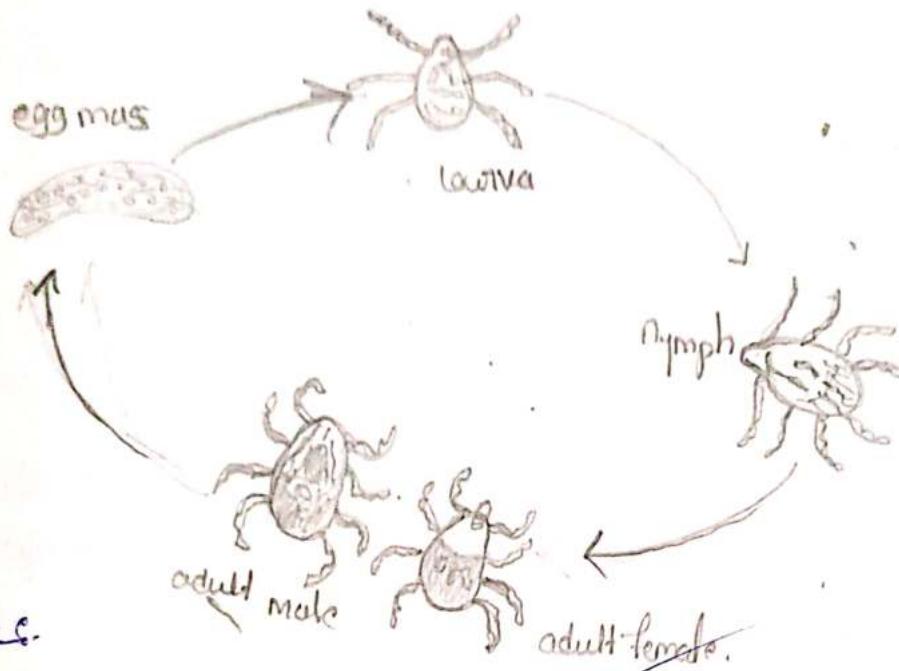 egg mas
larva
nymph
adult male
adult female.